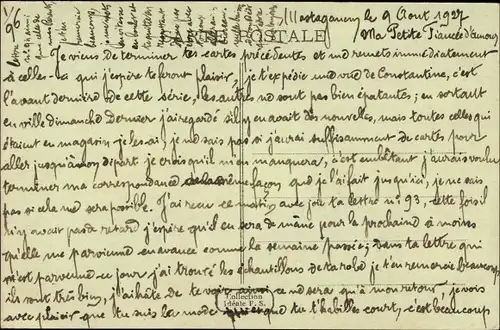 1/
96
Mostaganem, le 9 Août 1927
CARTE POSTALE
Ma Petite Fiancée d'amour
Je viens de terminer tes cartes précédentes et me remets immédiatement
à celle-ci qui j'espère te feront plaisir, je t'expédie une vue de Constantine, c'est
l'avant dernière de cette série, les autres ne sont pas bien épatantes; en sortant
en ville dimanche dernier j'ai regardé s'il y en avait des nouvelles, mais toutes celles qui
étaient en magasin je les ai, je ne sais pas si j'aurai suffisamment de cartes pour
aller jusqu'à mon départ je crois qu'il m'en manquera, c'est embêtant j'aurais voulu
terminer ma correspondance de la même façon que je l'ai fait jusqu'ici, je ne sais
pas si cela me sera possible. J'ai reçu ce matin avec joie ta lettre n° 93, cette fois il
n'y avait pas de retard j'espère qu'il en sera de même pour la prochaine à moins
qu'elle me parvienne en avance comme la semaine passée; dans ta lettre qui
m'est parvenue ce jour j'ai trouvé les échantillons de ta robe je t'en remercie beaucoup
ils sont très bien, j'ai hâte de te voir ainsi ce ne sera qu'à mon retour, je vois
avec plaisir que tu suis la mode puisque tu t'habilles court, c'est beaucoup
Collection
Idéale P. S.